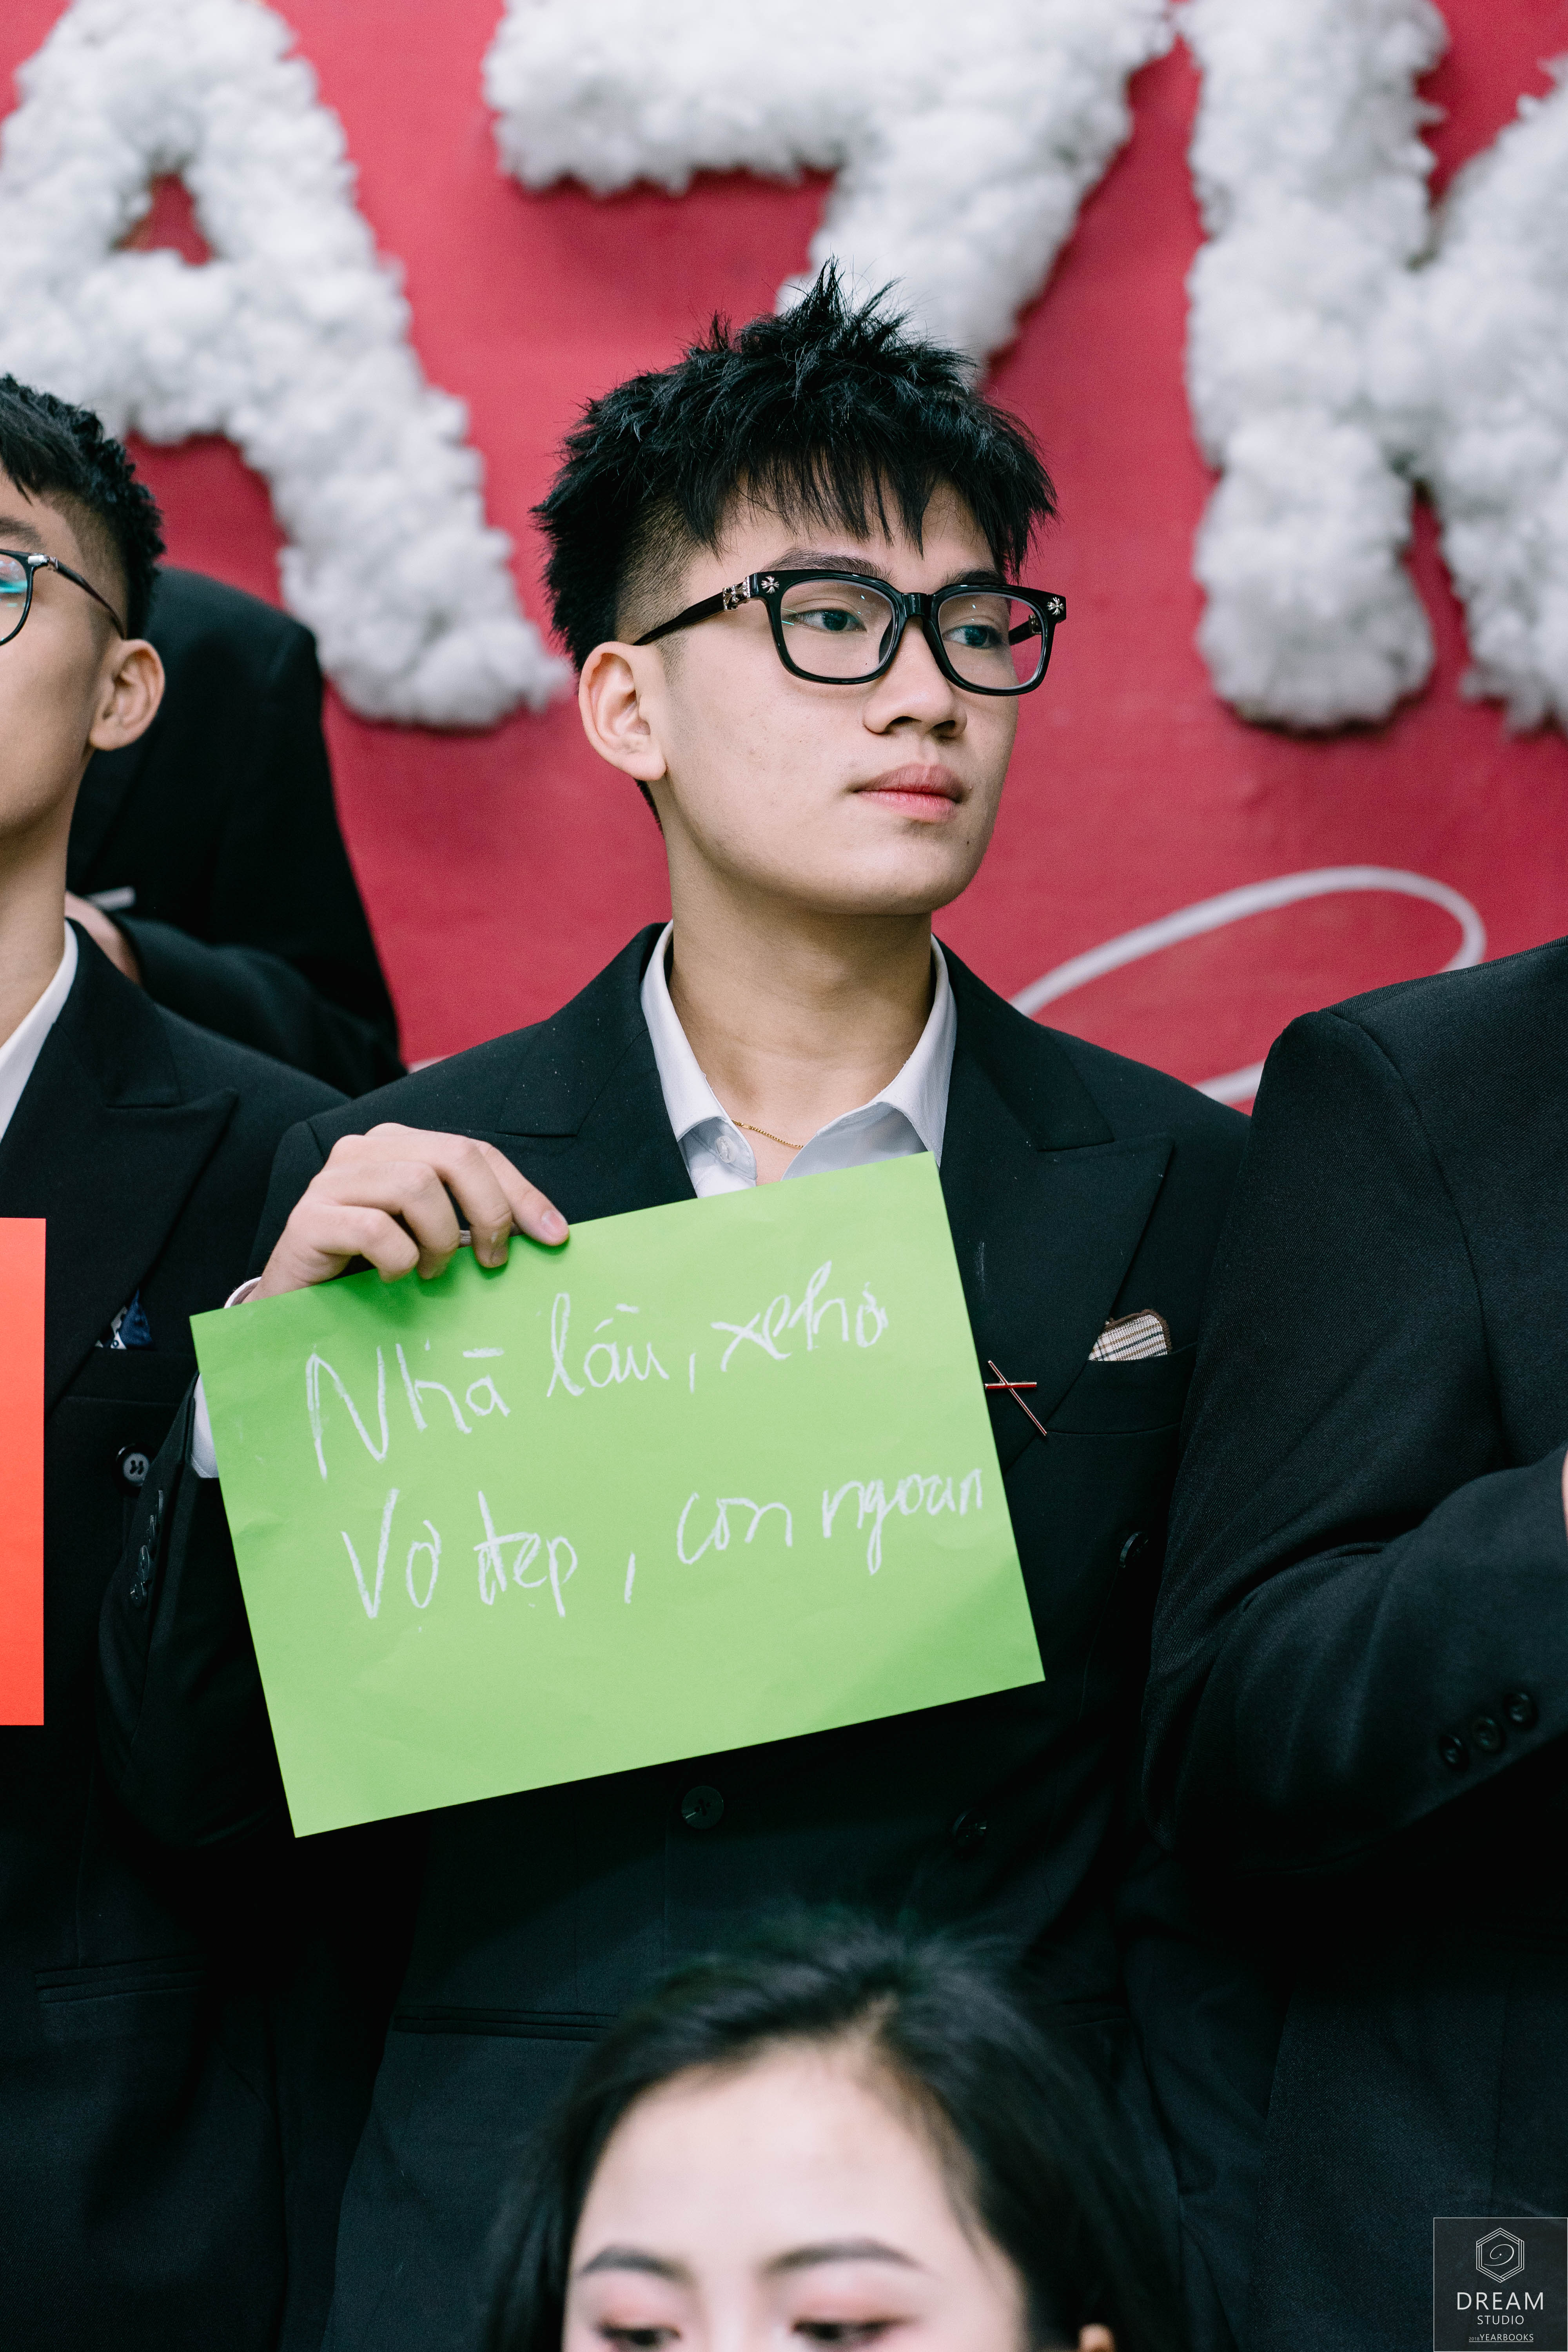 A7K
Nhà lầu, xe hơi
Vợ đẹp, con ngoan
DREAM
STUDIO
YEARBOOKS